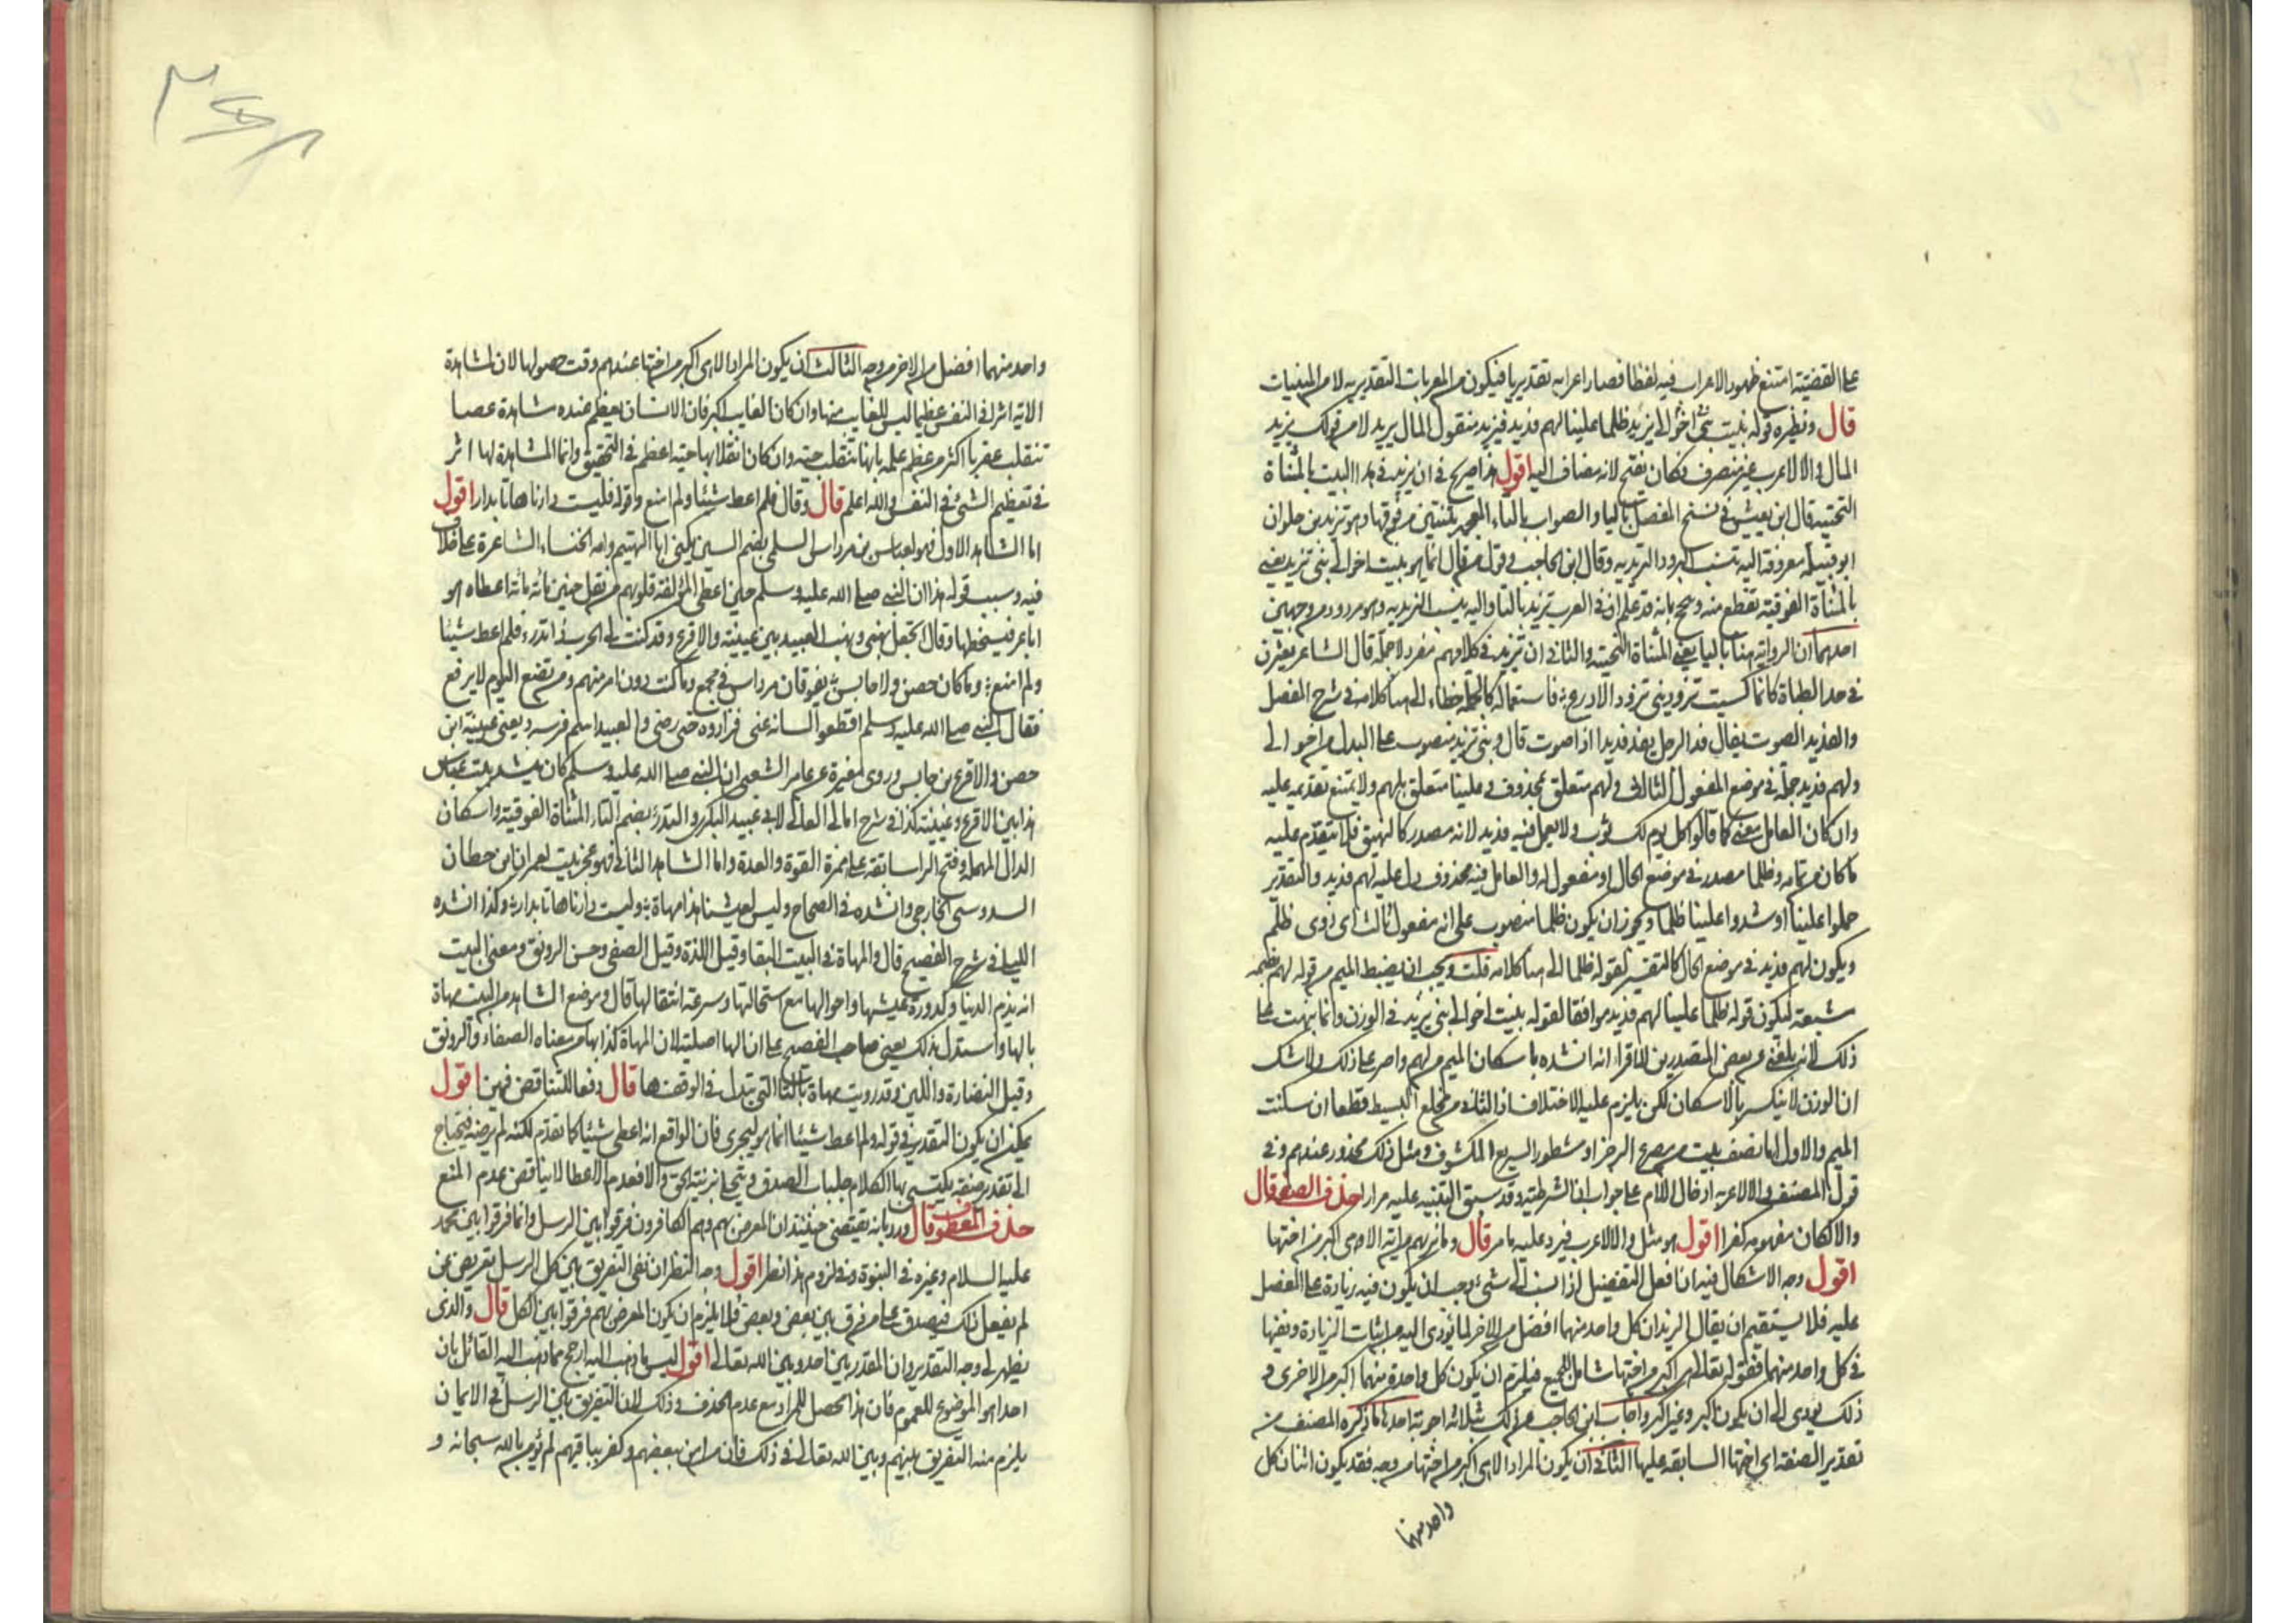 على القضية امتنع ظهور الاعراب فيه لفظا فصار اعرابه تقديريا فيكون من المعربات التقديرية لا من المبنيات
قال ونظيره قوله نبئت اخوالي بني يزيد ظلما علينا لهم فديد فيزيد منقول المال يريد لا من قولك يزيد
المال والا لاعرب غير منصرف فكان يفتح لانه مضاف اليه اقول هذا صريح في ان يزيد في هذا البيت بالمثناة
التحتية قال ابن يعيش في نسخ المفصل باليا والصواب بالتاء المعجمة بثنتين من فوقها وهو تزيد بن حلوان
ابو قبيلة معروفة اليه تنسب البرود التزيدية وقال ابن الحاجب وقول من قال انما هو نبئت اخوالي بني تزيد يعني
بالمثناة الفوقية تقطع منه وتبجح بانه قد علم ان في العرب تزيد بالتا واليه ينسب التزيدية وهو مردود من وجهين
احدهما ان الرواية هنا باليا يعني المثناة التحتية والثاني ان تزيد في كلامهم مفرد لا جملة قال الشاعر يعثرن
في حد الظباة كانما كسيت تزوديني تزود الاذرع فاستعماله كالجملة خطاء الى هنا كلامه في شرح المفصل
والفديد الصوت يقال فد الرجل يفد فديدا اذا صوت قال وبني تزيد منصوب على البدل من اخوالي
ولهم فديد جملة في موضع المفعول الثالث ولهم متعلق بمحذوف وعلينا متعلق بلهم ولا يمتنع تقديمه عليه
وان كان العامل معنى كما قالوا كل يوم لك ثوب ولا يعمل فيه فديد لانه مصدر كالنهيق فلا يتقدم عليه
ما كان من تمامه وظلما مصدر في موضع الحال او مفعول له والعامل فيه محذوف دل عليه لهم فديد والتقدير
حملوا علينا او شدوا علينا ظلما ويجوز ان يكون ظلما منصوب على انه مفعول ثالث اي ذوي ظلم
ويكون لهم فديد في موضع الحال كالتفسير لقوله ظلما الى هنا كلامه قلت ويجب ان يضبط الميم من قوله لهم بضمة
مشبعة ليكون قوله ظلما علينا لهم فديد موافقا لقوله نبئت اخوالي بني يزيد في الوزن وانما نبهت على
ذلك لانه بلغني عن بعض المتصدرين للاقرا انه انشده باسكان الميم من لهم واصر على ذلك ولا شك
ان الوزن لا ينكسر بالاسكان لكن يلزم عليه الاختلاف اذ الثاني من مخلع البسيط قطعا ان سكنت
الميم والاول اما نصف بيت من مصرع الرجز او مشطور السريع المكشوف ومثل ذلك محذور عندهم وفي
قول المصنف والا لاعرب ادخال اللام على جواب ان الشرطية وقد سبق التنبيه عليه مرارا حذف الصفة قال
والا لكان مفهومه كفرا اقول هو مثل والا لاعرب فيرد عليه ما مر قال وما نريهم من اية الا هي اكبر من اختها
اقول وجه الاشكال فيه ان افعل التفضيل اذا نسب الى شيء وجب ان يكون فيه زيادة على المفضل
عليه فلا يستقيم ان يقال الزيدان كل واحد منهما افضل من الاخر لما يؤدي اليه من اثبات الزيادة ونفيها
في كل واحد منهما فقوله تعالى هي اكبر من اختها شامل للجميع فيلزم ان يكون كل واحدة منهما اكبر من الاخرى و
ذلك يؤدي الى ان يكون اكبر وغير اكبر واجاب ابن الحاجب عن ذلك بثلاثة اجوبة احدها ما ذكره المصنف من
تقدير الصفة اي اختها السابقة عليها الثاني ان يكون المراد الا هي اكبر من اختها من وجه فقد يكون اثنان كل
واحد منهما
واحد منهما افضل من الاخر من وجه الثالث ان يكون المراد الا هي اكبر من اختها عندهم وقت حصولها لان لمشاهدة
الاية اثرا في النفس عظيما ليس للغايب منها وان كان الغايب اكبر فان الانسان يعظم عنده مشاهدة عصا
تنقلب عقربا اكثر من عظم علمه بانها تنقلب حية وان كان انقلابها حية اعظم في التحقيق وانما المشاهدة لها اثر
في تعظيم الشيء في النفس والله اعلم قال وقال فلم اعط شيئا ولم امنع وقوله فليست دارنا هاتا بدار اقول
اما الشاهد الاول فهو لعباس بن مرداس السلمي بضم السين يكنى ابا الهيثم وامه الخنساء الشاعرة على خلاف
فيه وسبب قوله هذا ان النبي صلى الله عليه وسلم حين اعطى المؤلفة قلوبهم من نفل حنين مائة مائة اعطاه هو
اباعر فسخطها وقال اتجعل نهبي ونهب العبيد بين عيينة والاقرع وقد كنت في الحرب ذا تدرء فلم اعط شيئا
ولم امنع وما كان حصن ولا حابس يفوقان مرداس في مجمع وما كنت دون امرء منهم ومن تضع اليوم لا يرفع
فقال النبي صلى الله عليه وسلم اقطعوا لسانه عني فزادوه حتى رضي والعبيد اسم فرسه ويعني عيينة ابن
حصن والاقرع بن حابس وروى مغيرة عن عامر الشعبي ان النبي صلى الله عليه وسلم كان ينشد بيت عباس
هذا بين الاقرع وعيينة كذا في شرح امالي القالي لابي عبيد البكري والتدرء بضم التاء المثناة الفوقية واسكان
الدال المهملة وفتح الراسابقة على همزة القوة والعدة واما الشاهد الثاني فهو عجز بيت لعمران ابن حطان
السدوسي الخارجي وانشده في الصحاح وليس لعيشنا هذا مهاة وليست دارنا هاتا بدار وكذا انشده
اللبلي في شرح الفصيح قال والمهاة في البيت البقا وقيل اللذة وقيل الصفي وحسن الرونق ومعنى البيت
انه يذم الدنيا وكدورة عيشها واحوالها مع استحالتها وسرعة انتقالها قال وموضع الشاهد من البيت مهاة
بالها واستدل بذلك يعني صاحب الفصيح على ان الها اصلية لان المهاة كذا بها من معناه الصفاء والرونق
وقيل النضارة واللين وقد رويت مهاة بالتا التي تبدل في الوقف ها قال دفعا للتناقض فيهن اقول
يمكن ان يكون التقدير في قوله ولم اعط شيئا انما هو ليجري فان الواقع انه اعطي شيئا كما تقدم لكنه لم يرضه فيحتاج
الى تقدير صفة يكتسي بها الكلام جلباب الصدق ويتحلى بزينة الحق والا فعدم الاعطا لا يناقض عدم المنع
حذف المعطوف قال ورد بانه يقتضي حينئذ ان المعرض بهم وهم الكافرون فرقوا بين الرسل وانما فرقوا بين محمد
عليه السلام وغيره في النبوة وفي لزوم هذا نظر اقول وجه النظر ان نفي التفريق بين كل الرسل تعريض بمن
لم يفعل ذلك فيصدق على من فرق بين بعض وبعض فلا يلزم ان يكون المعرض بهم فرقوا بين الكل قال والذي
يظهر لي وجه التقدير وان المقدر بين احد وبين الله تعالى اقول ليس ما ذهب اليه ارجح مما ذهب اليه القائل بان
احدا هو الموضوع للعموم فان هذا محصل للمراد مع عدم الحذف وذلك لان التفريق بين الرسل في الايمان
يلزم منه التفريق بينهم وبين الله تعالى في ذلك فان من امن ببعضهم وكفر بباقيهم لم يؤمن بالله سبحانه و